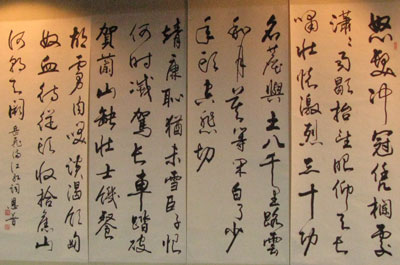 怒髮冲冠凭欄處
瀟瀟雨歇抬望眼仰天長
嘯壯懷激烈三十功
名塵與土八千里路雲
和月莫等閑白了少
年頭空悲切
靖康恥猶未雪臣子恨
何時滅駕長車踏破
賀蘭山缺壯士饑餐
胡虜肉笑談渴飲匈
奴血待從頭收拾舊山
河朝天闕 岳飛滿江紅詞